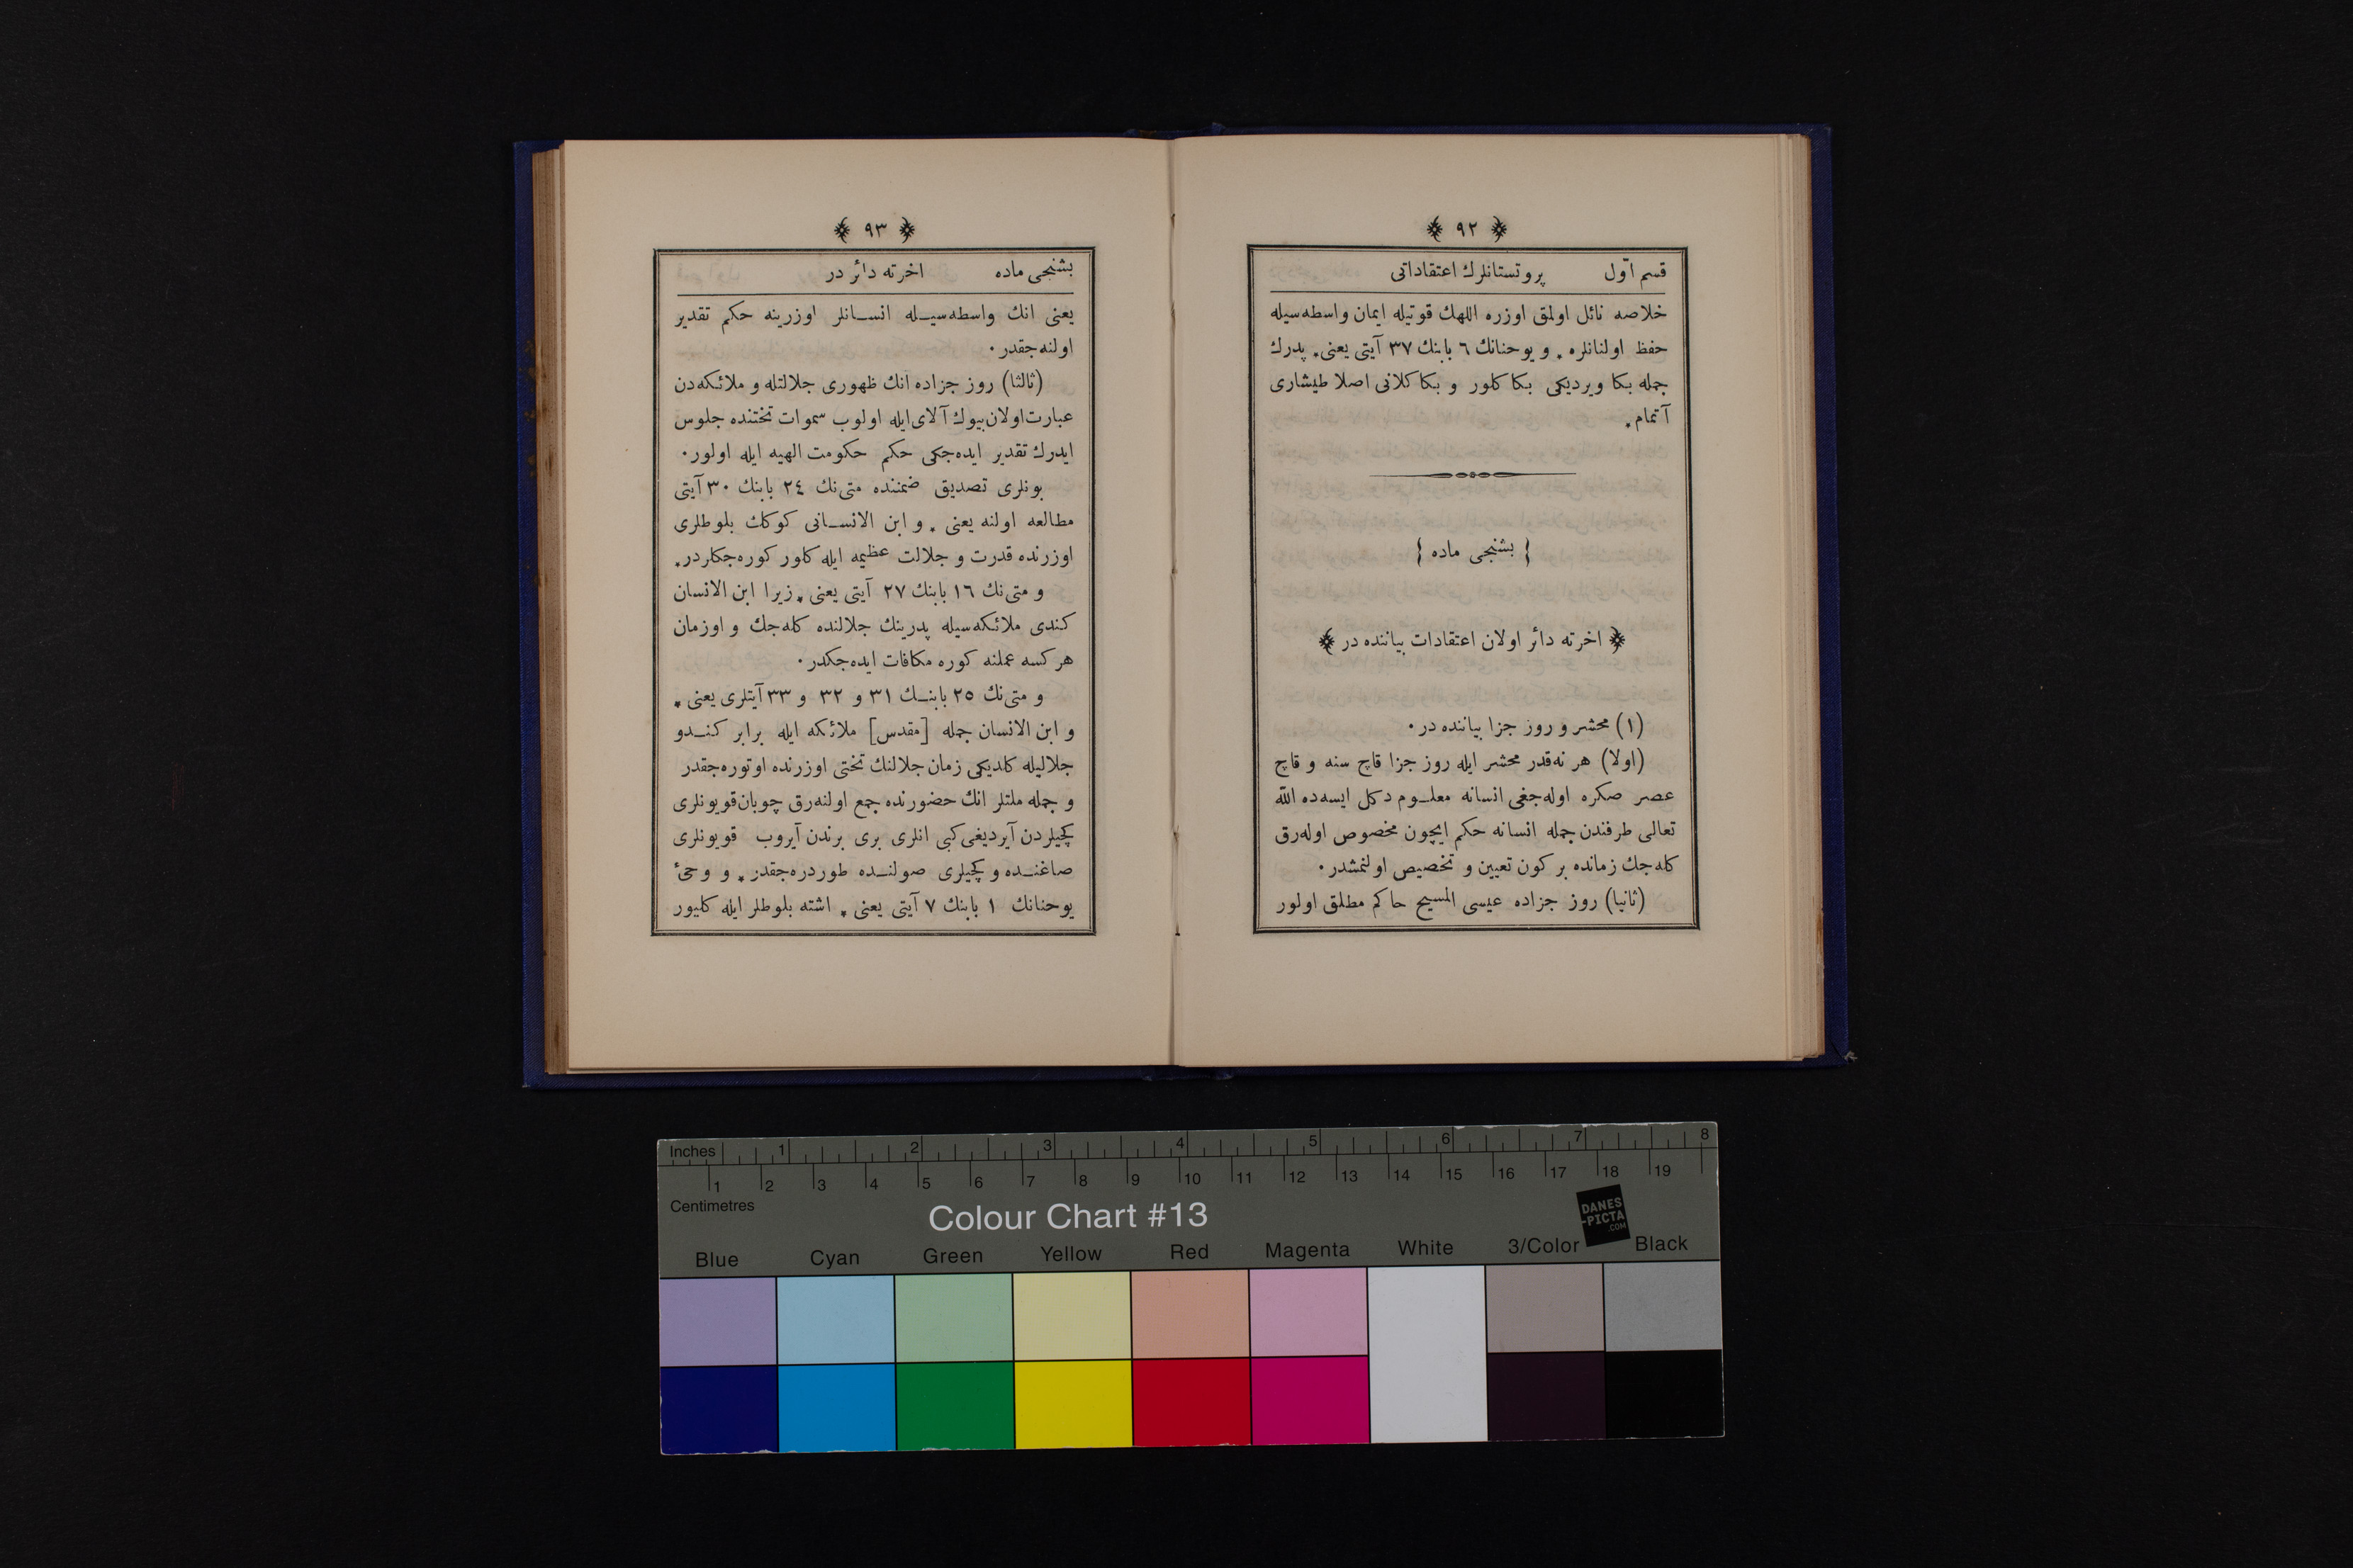 ﴿ ٩٢ ﴾
قسم اوّل پروتستانلرك اعتقاداتى
خلاصه نائل اولمق اوزره اللهك قوتيله ايمان واسطه‌سيله
حفظ اولنانلره ٭ و يوحنانك ٦ بابنك ٣٧ آيتى يعنى٭ پدرك
جمله بكا ويرديكى بكا كلور و بكا كلانى اصلا طيشارى
آتمام٭
{ بشنجى ماده }
﴿ اخرته دائر اولان اعتقادات بياننده در ﴾
(١) محشر و روز جزا بياننده در۰
(اولا) هر نه‌قدر محشر ايله روز جزا قاچ سنه و قاچ
عصر صكره اوله‌جغى انسانه معلـوم دكل ايسه‌ده الله
تعالى طرفندن جمله انسانه حكم ايچون مخصوص اوله‌رق
كله‌جك زمانده بر كون تعيين و تخصيص اولنمشدر۰
(ثانيا) روز جزاده عيسى المسيح حاكم مطلق اولور
﴿ ٩٣ ﴾
بشنجى ماده اخرته دائر در
يعنى انك واسطه‌سيـله انسـانلر اوزرينه حكم تقدير
اولنه‌جقدر۰
(ثالثا) روز جزاده انك ظهورى جلالتله و ملائكه‌دن
عبارت اولان بيوك آلاى ايله اولوب سموات تختنده جلوس
ايدرك تقدير ايده‌جكى حكم حكومت الهيه ايله اولور۰
بونلرى تصديق ضمننده متى‌نك ٢٤ بابنك ٣٠ آيتى
مطالعه اولنه يعنى ٭ و ابن الانسـانى كوكك بلوطلرى
اوزرنده قدرت و جلالت عظيمه ايله كلور كوره‌جكلردر٭
و متى‌نك ١٦ بابنك ٢٧ آيتى يعنى ٭ زيرا ابن الانسان
كندى ملائكه‌سيله پدرينك جلالنده كله‌جك و اوزمان
هر كسه عملنه كوره مكافات ايده‌جكدر۰
و متى‌نك ٢٥ بابنـك ٣١ و ٣٢ و ٣٣ آيتلرى يعنى ٭
و ابن الانسان جمله [مقدس] ملائكه ايله برابر كنـدو
جلاليله كلديكى زمان جلالنك تختى اوزرنده اوتوره‌جقدر
و جمله ملتلر انك حضورنده جمع اولنه‌رق چوبان قويونلرى
كچيلردن آيرديغى كبى انلرى برى برندن آيروب قويونلرى
صاغنـده و كچيلرى صولنـده طوردره‌جقدر ٭ و وحىٔ
يوحنانك ١ بابنك ٧ آيتى يعنى ٭ اشته بلوطلر ايله كليور
Inches 1 2 3 4 5 6 7 8
1 2 3 4 5 6 7 8 9 10 11 12 13 14 15 16 17 18 19
Centimetres
Colour Chart #13
DANES
-PICTA
.COM
Blue Cyan Green Yellow Red Magenta White 3/Color Black